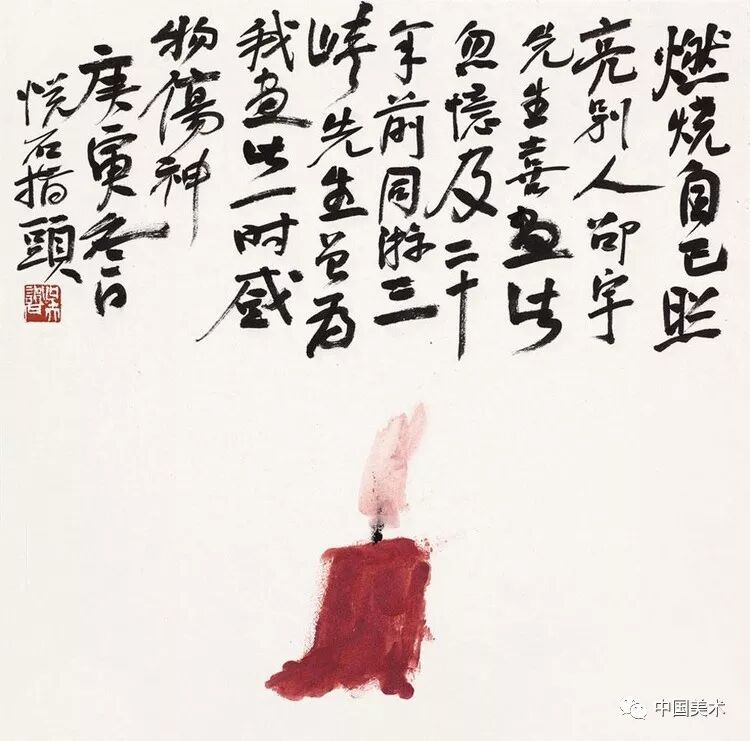 燃烧自己照
亮别人邵宇
先生喜画此
忽憶及二十
年前同游三
峡先生曾为
我画此一时感
物傷神
庚寅冬日
悦石指頭
中国美术